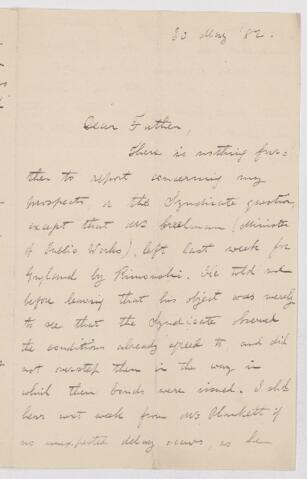 30 May '82.
Dear Father,
There is nothing fur-
ther to report concerning my
prospects, or the Syndicate question
except that Mr (Minister
of Public Works), left last week for
England by Rimouski. He told me
before leaving that his object was merely
to see that the Syndicate observed
the conditions already agreed to and did
not overstep them in the way in
which their bonds were issued. I shall
hear next week from Mr Plunkett if
no unexpected delay occurs, as he